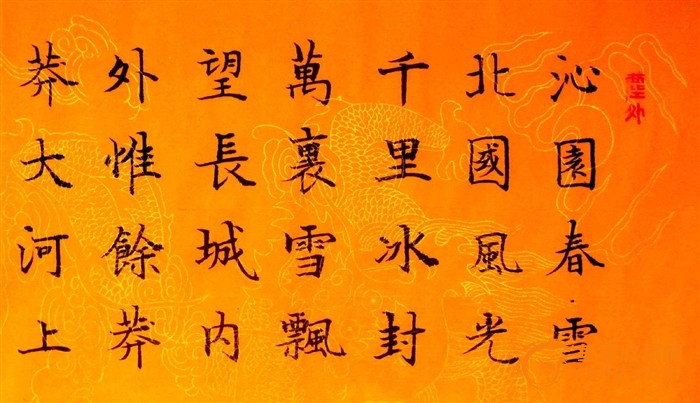 沁園春·雪
北國風光
千里冰封
萬裏雪飄
望長城内
外惟餘莽
莽大河上